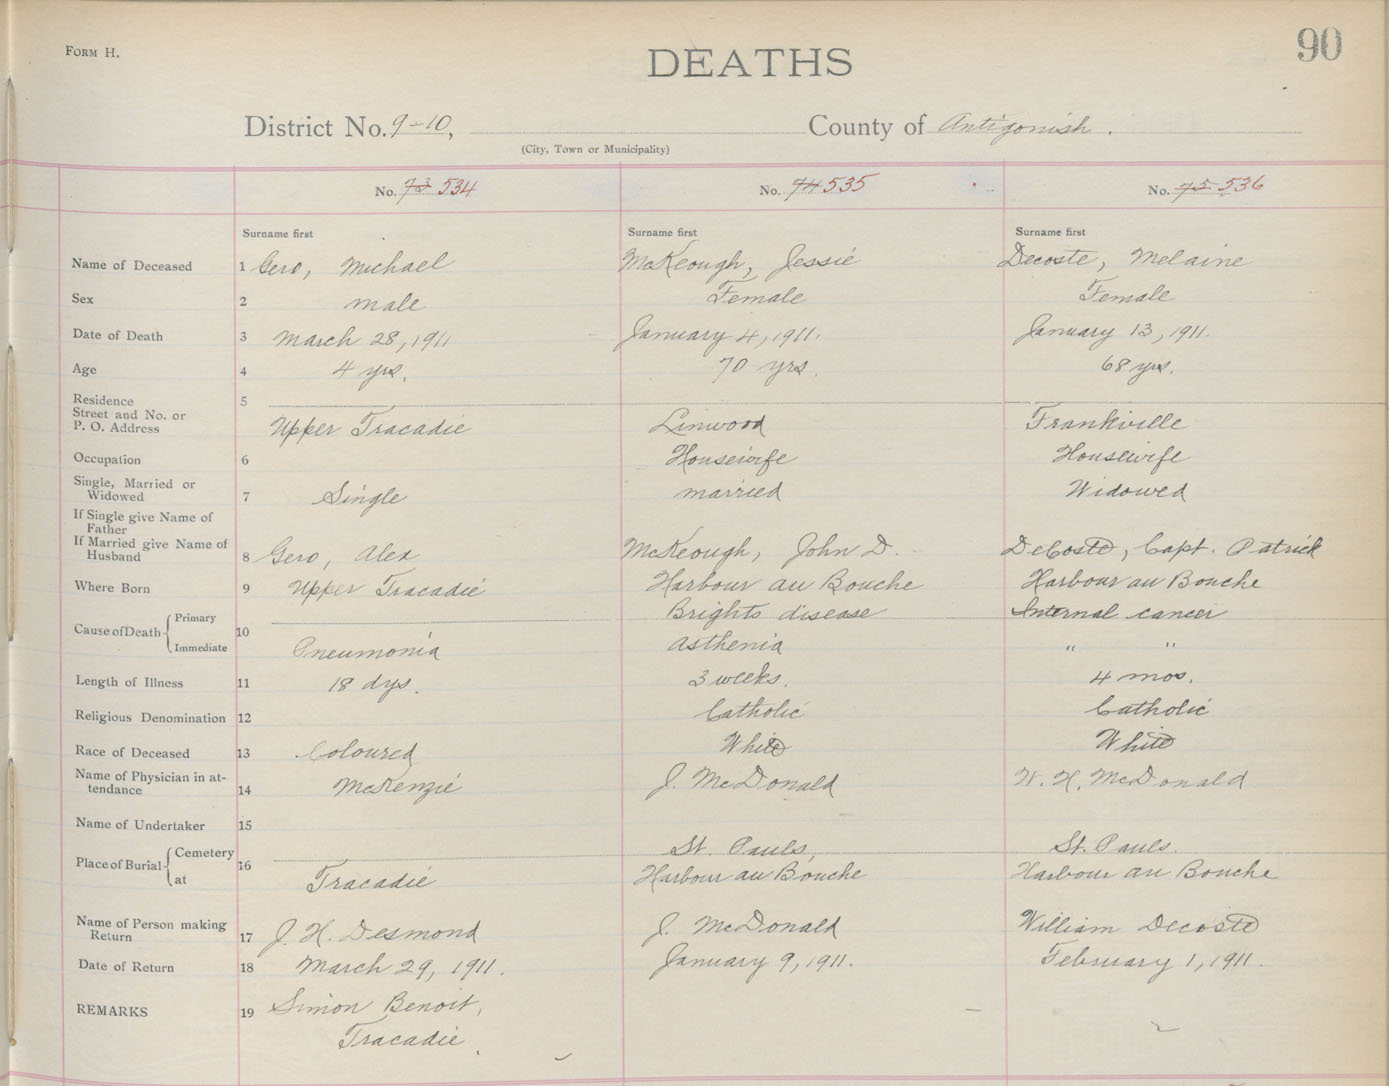 FORM H.
DEATHS
90
District No. 9-10, County of Antigonish.
(City, Town or Municipality)
No. 73 534 No. 74 535 No. 75 536
Surname first Surname first Surname first
Name of Deceased 1 Gero, Michael McKeough, Jessie Decoste, Melaine
Sex 2 male Female Female
Date of Death 3 March 28, 1911 January 4, 1911. January 13, 1911.
Age 4 4 yrs. 70 yrs. 68 yrs.
Residence 5
Street and No. or
P. O. Address Upper Tracadie Linwood Frankville
Occupation 6 Housewife Housewife
Single, Married or
Widowed 7 Single married Widowed
If Single give Name of
Father
If Married give Name of
Husband 8 Gero, Alex McKeough, John D. DeCoste, Capt. Patrick
Where Born 9 Upper Tracadie Harbour au Bouche Harbour au Bouche
Cause of Death Primary 10 Brights disease Internal cancer
Immediate Pneumonia Asthenia " "
Length of Illness 11 18 dys. 3 weeks. 4 mos.
Religious Denomination 12 Catholic Catholic
Race of Deceased 13 Coloured White White
Name of Physician in at-
tendance 14 McKenzie J. McDonald W. H. McDonald
Name of Undertaker 15
Place of Burial Cemetery 16 St. Pauls, St. Pauls.
at Tracadie Harbour au Bouche Harbour au Bouche
Name of Person making
Return 17 J. H. Desmond J. McDonald William Decoste
Date of Return 18 March 29, 1911. January 9, 1911. February 1, 1911.
REMARKS 19 Simon Benoit,
Tracadie.